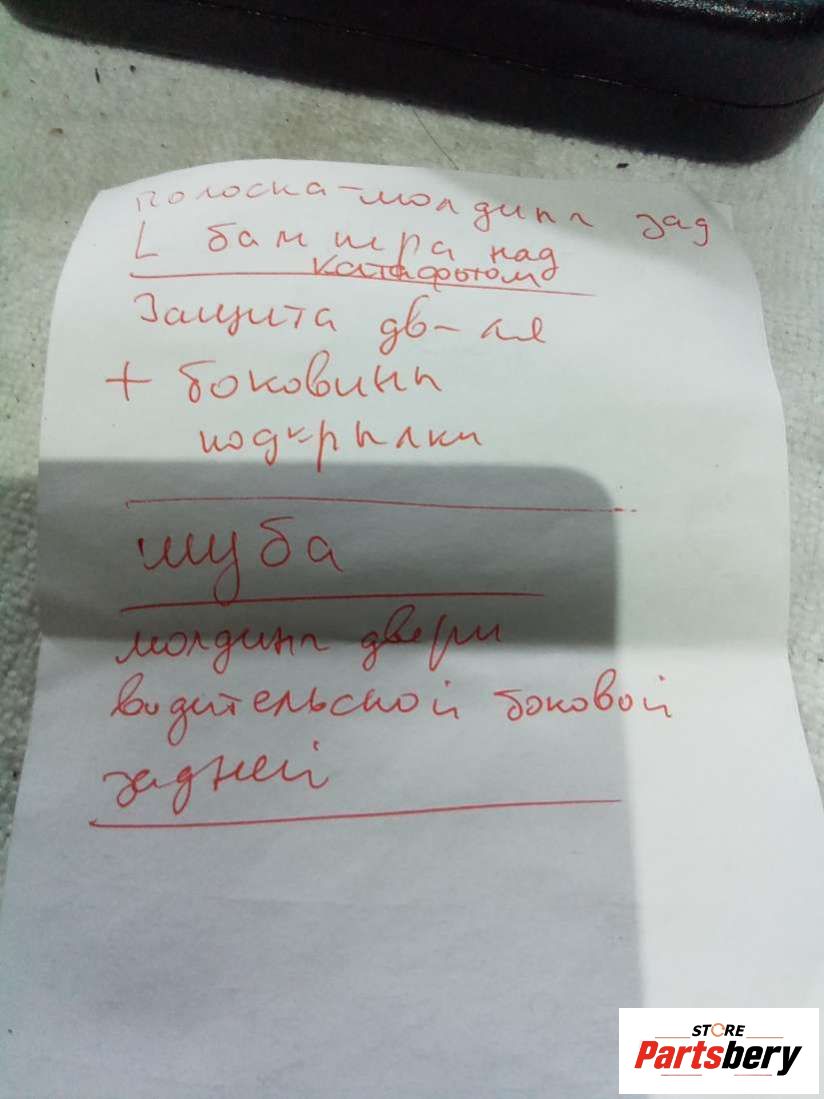 полоска-молдинг зад
L бампера над
катафотом
Защита дв-ля
+ боковины
подкрылки
шуба
молдинг двери
водительской боковой
задней
STORE
Partsbery